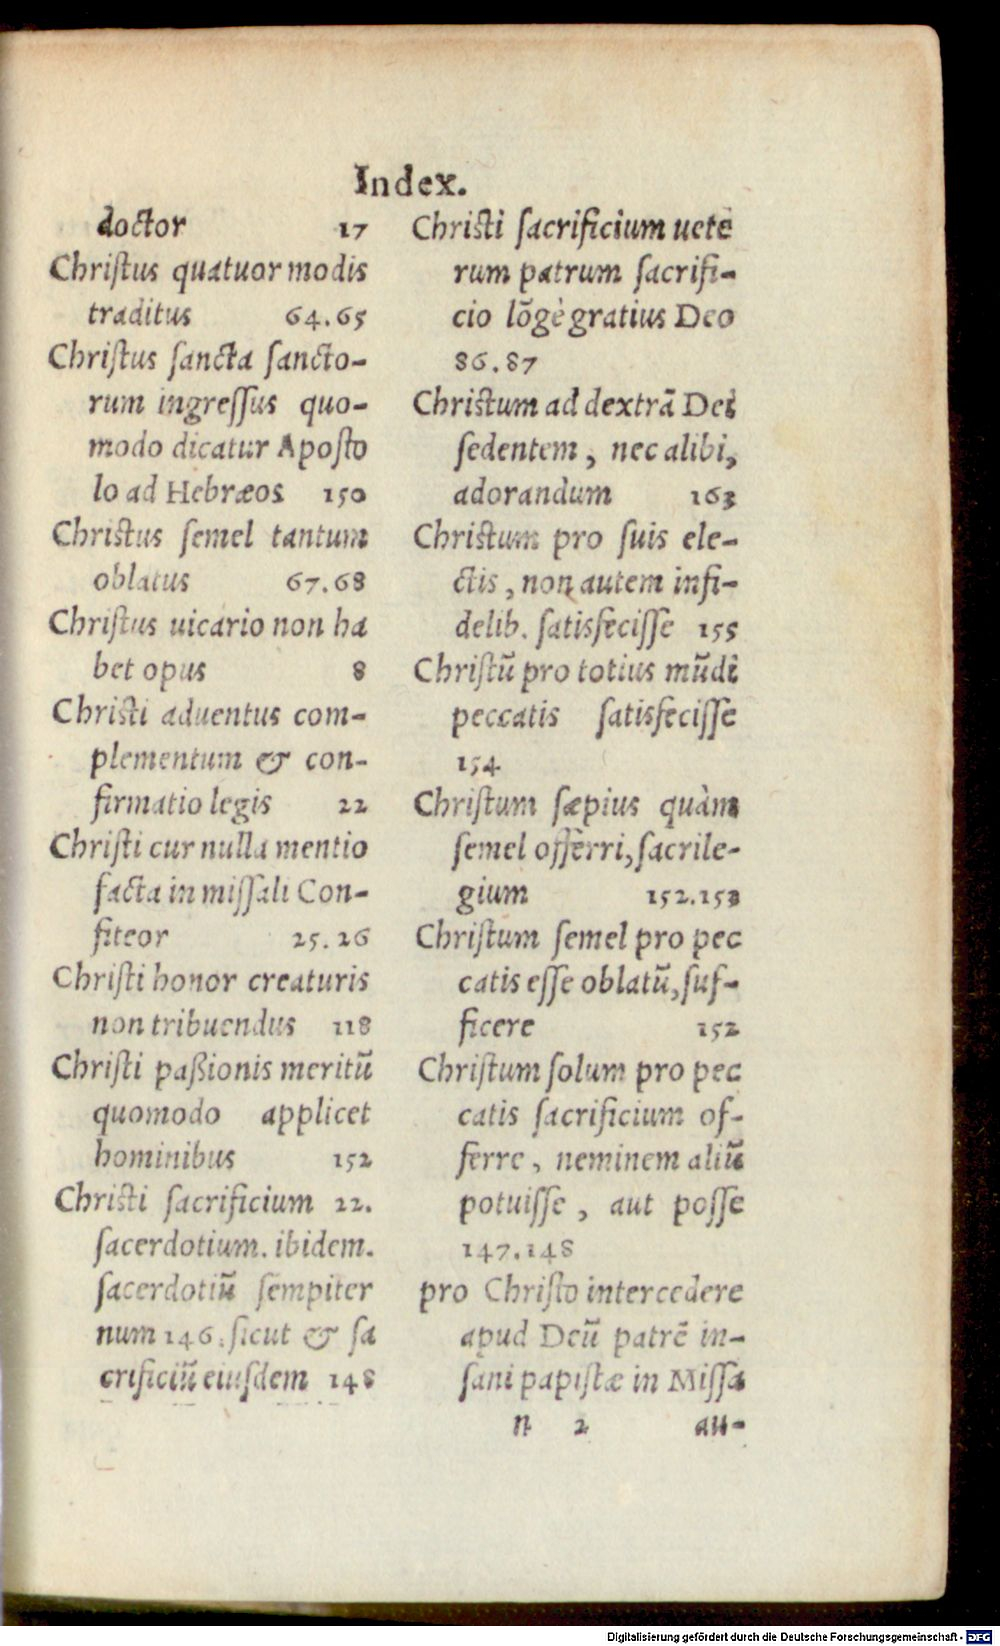 Index.
doctor 17
Chriſtus quatuor modis
traditus 64.65
Chriſtus ſancta ſancto-
rum ingreſſus quo-
modo dicatur Apoſto
lo ad Hebræos 150
Chriſtus ſemel tantum
oblatus 67.68
Chriſtus uicario non ha
bet opus 8
Chriſti aduentus com-
plementum & con-
firmatio legis 22
Chriſti cur nulla mentio
facta in miſſali Con-
fiteor 25.26
Chriſti honor creaturis
non tribuendus 118
Chriſti paßionis meritũ
quomodo applicet
hominibus 152
Chriſti ſacrificium 22.
ſacerdotium. ibidem.
ſacerdotiũ ſempiter
num 146. ſicut & ſa
crificiũ eiuſdem 148
Chriſti ſacrificium uete
rum patrum ſacrifi-
cio lõgè gratius Deo
86.87
Chriſtum ad dextrã Dei
ſedentem, nec alibi,
adorandum 163
Chriſtum pro ſuis ele-
ctis, non autem infi-
delib. ſatisfeciſſe 155
Chriſtũ pro totius mũdi
peccatis ſatisfeciſſe
154
Chriſtum ſæpius quàm
ſemel offerri, ſacrile-
gium 152.153
Chriſtum ſemel pro pec
catis eſſe oblatũ, ſuf-
ficere 152
Chriſtum ſolum pro pec
catis ſacrificium of-
ferre, neminem aliũ
potuiſſe, aut poſſe
147.148
pro Chriſto intercedere
apud Deũ patrẽ in-
ſani papiſtæ in Miſſa
n 2 au-
Digitalisierung gefördert durch die Deutsche Forschungsgemeinschaft - DFG